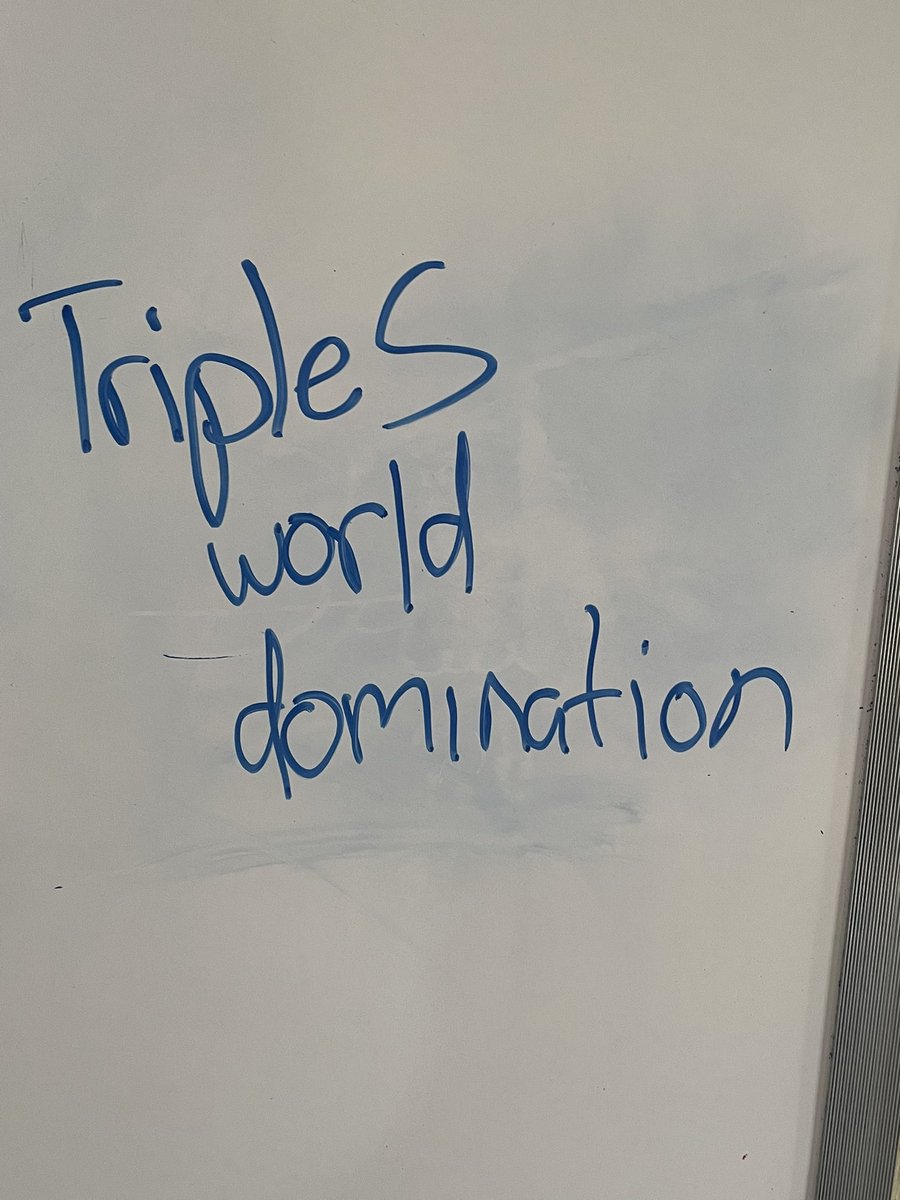 TripleS
world
domination